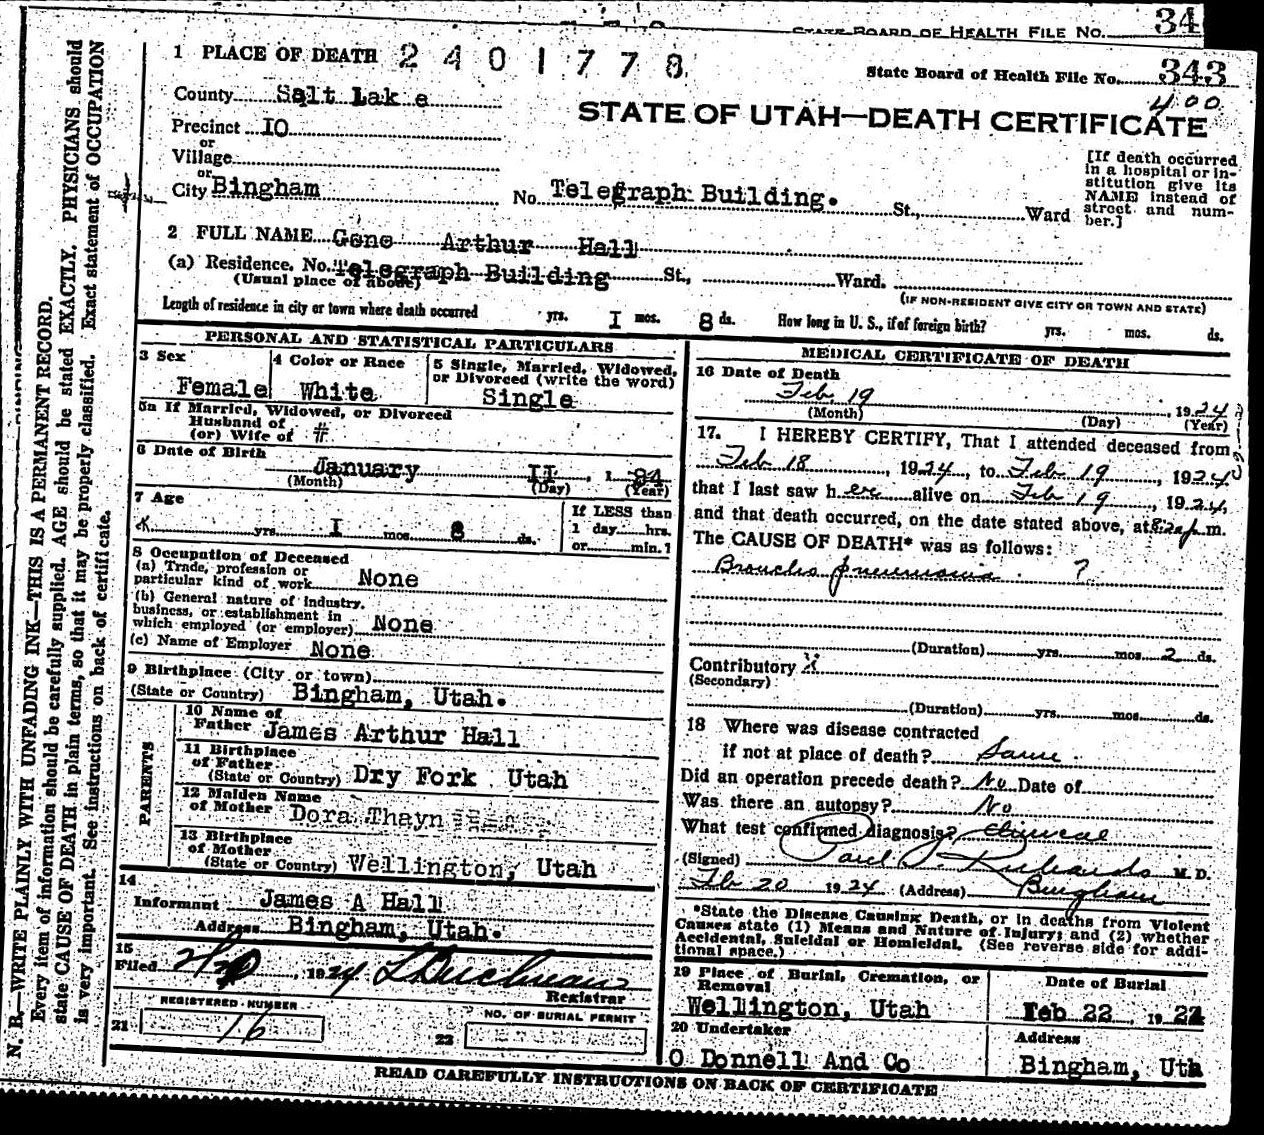 34
STATE BOARD OF HEALTH FILE NO.
1 PLACE OF DEATH 2 4 0 1 7 7 8
State Board of Health File No. 343
400
County Salt Lake
STATE OF UTAH—DEATH CERTIFICATE
Precinct 10
or
Village
or
City Bingham
No. Telegraph Building. St., Ward
[If death occurred
in a hospital or in-
stitution give its
NAME instead of
street and num-
ber.]
2 FULL NAME Gene Arthur Hall
(a) Residence. No. Telegraph Building St., Ward.
(Usual place of abode)
(IF NON-RESIDENT GIVE CITY OR TOWN AND STATE)
Length of residence in city or town where death occurred yrs. I mos. 8 ds. How long in U. S., if of foreign birth? yrs. mos. ds.
PERSONAL AND STATISTICAL PARTICULARS
3 Sex
Female
4 Color or Race
White
5 Single, Married, Widowed,
or Divorced (write the word)
Single
5a If Married, Widowed, or Divorced
Husband of
(or) Wife of #
6 Date of Birth
January II, 1 24
(Month) (Day) (Year)
7 Age
yrs. I mos. 8 ds.
If LESS than
1 day hrs.
or min.?
8 Occupation of Deceased
(a) Trade, profession or
particular kind of work None
(b) General nature of industry,
business, or establishment in
which employed (or employer) None
(c) Name of Employer None
9 Birthplace (City or town)
(State or Country) Bingham, Utah.
PARENTS
10 Name of
Father James Arthur Hall
11 Birthplace
of Father
(State or Country) Dry Fork Utah
12 Maiden Name
of Mother Dora Thayn
13 Birthplace
of Mother
(State or Country) Wellington, Utah
14
Informant James A Hall
Address Bingham, Utah.
15
Filed , 1924
Registrar
REGISTERED NUMBER
21 16
NO. OF BURIAL PERMIT
22
MEDICAL CERTIFICATE OF DEATH
16 Date of Death
Feb 19, 1924
(Month) (Day) (Year)
17. I HEREBY CERTIFY, That I attended deceased from
Feb 18, 1924, to Feb 19, 1924
that I last saw h er alive on Feb 19, 1924,
and that death occurred, on the date stated above, at m.
The CAUSE OF DEATH* was as follows:
Broncho pneumonia ?
(Duration) yrs. mos. 2 ds.
Contributory X
(Secondary)
(Duration) yrs. mos. ds.
18 Where was disease contracted
if not at place of death? Same.
Did an operation precede death? No Date of
Was there an autopsy? No
What test confirmed diagnosis? Clinical
(Signed) Paul S Richards M. D.
Feb 20 1924 (Address) Bingham
*State the Disease Causing Death, or in deaths from Violent
Causes state (1) Means and Nature of Injury; and (2) whether
Accidental, Suicidal or Homicidal. (See reverse side for addi-
tional space.)
19 Place of Burial, Cremation, or
Removal
Wellington, Utah
Date of Burial
Feb 22, 1924
20 Undertaker
O Donnell And Co
Address
Bingham, Uth
READ CAREFULLY INSTRUCTIONS ON BACK OF CERTIFICATE
N. B.—WRITE PLAINLY WITH UNFADING INK—THIS IS A PERMANENT RECORD.
Every item of information should be carefully supplied. AGE should be stated EXACTLY. PHYSICIANS should
state CAUSE OF DEATH in plain terms, so that it may be properly classified. Exact statement of OCCUPATION
is very important. See instructions on back of certificate.